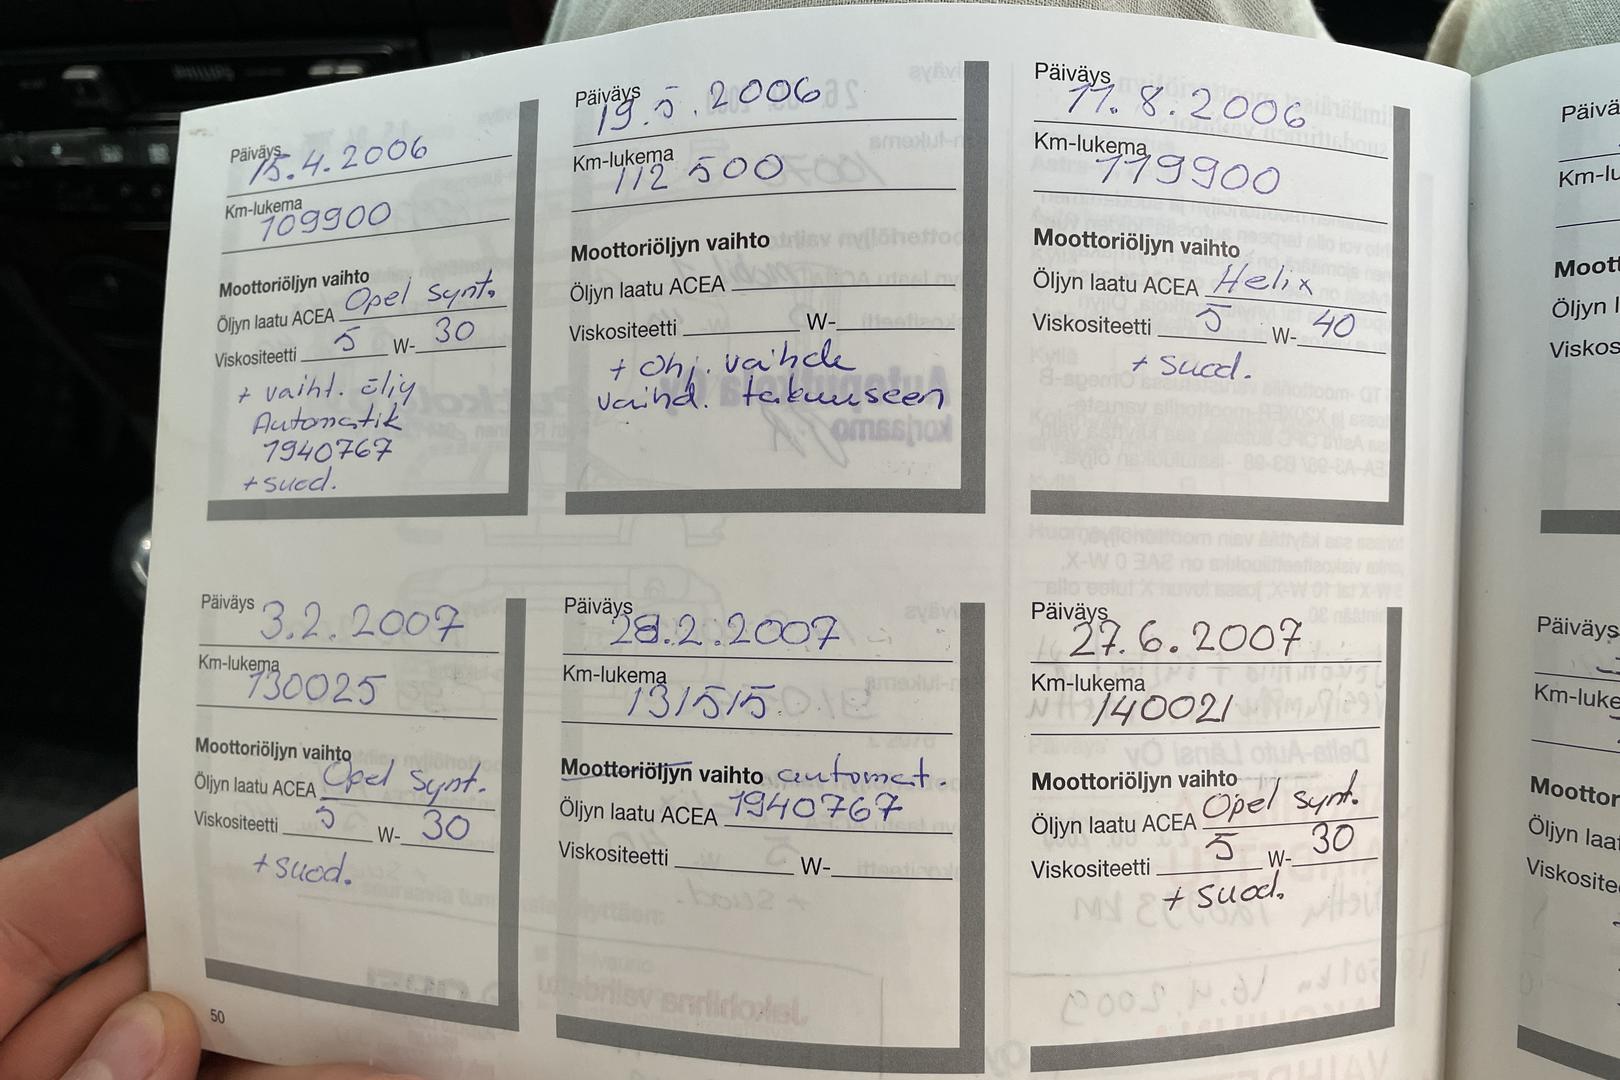 PHILIPS
Päiväys 15.4.2006
Km-lukema 109900
Moottoriöljyn vaihto
Öljyn laatu ACEA Opel synt.
Viskositeetti 5 W- 30
+ vaiht. öljy
Automatik
1940767
+ suod.
Päiväys 19.5.2006
Km-lukema 112 500
Moottoriöljyn vaihto
Öljyn laatu ACEA
Viskositeetti W-
+ Ohj. vaihde
vaihd. takuuseen
Päiväys 11.8.2006
Km-lukema 119900
Moottoriöljyn vaihto
Öljyn laatu ACEA Helix
Viskositeetti 5 W- 40
+ suod.
Päiväys 3.2.2007
Km-lukema 130025
Moottoriöljyn vaihto
Öljyn laatu ACEA Opel synt.
Viskositeetti 5 W- 30
+ suod.
Päiväys 28.2.2007
Km-lukema 131515
Moottoriöljyn vaihto automat.
Öljyn laatu ACEA 1940767
Viskositeetti W-
Päiväys 27.6.2007
Km-lukema 140021
Moottoriöljyn vaihto
Öljyn laatu ACEA Opel synt.
Viskositeetti 5 W- 30
+ suod.
50
Päivä
Km-lu
Moott
Öljyn l
Viskos
Päiväys
Km-luke
Moottor
Öljyn laa
Viskosite